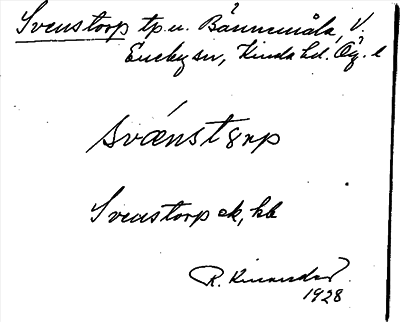 Svenstorp tp u. Bånnemåla, V.
Eneby sn, Kinda hd. Ög. l
svǽnstɤrp
Svenstorp ek, hb
R. Kinander
1928